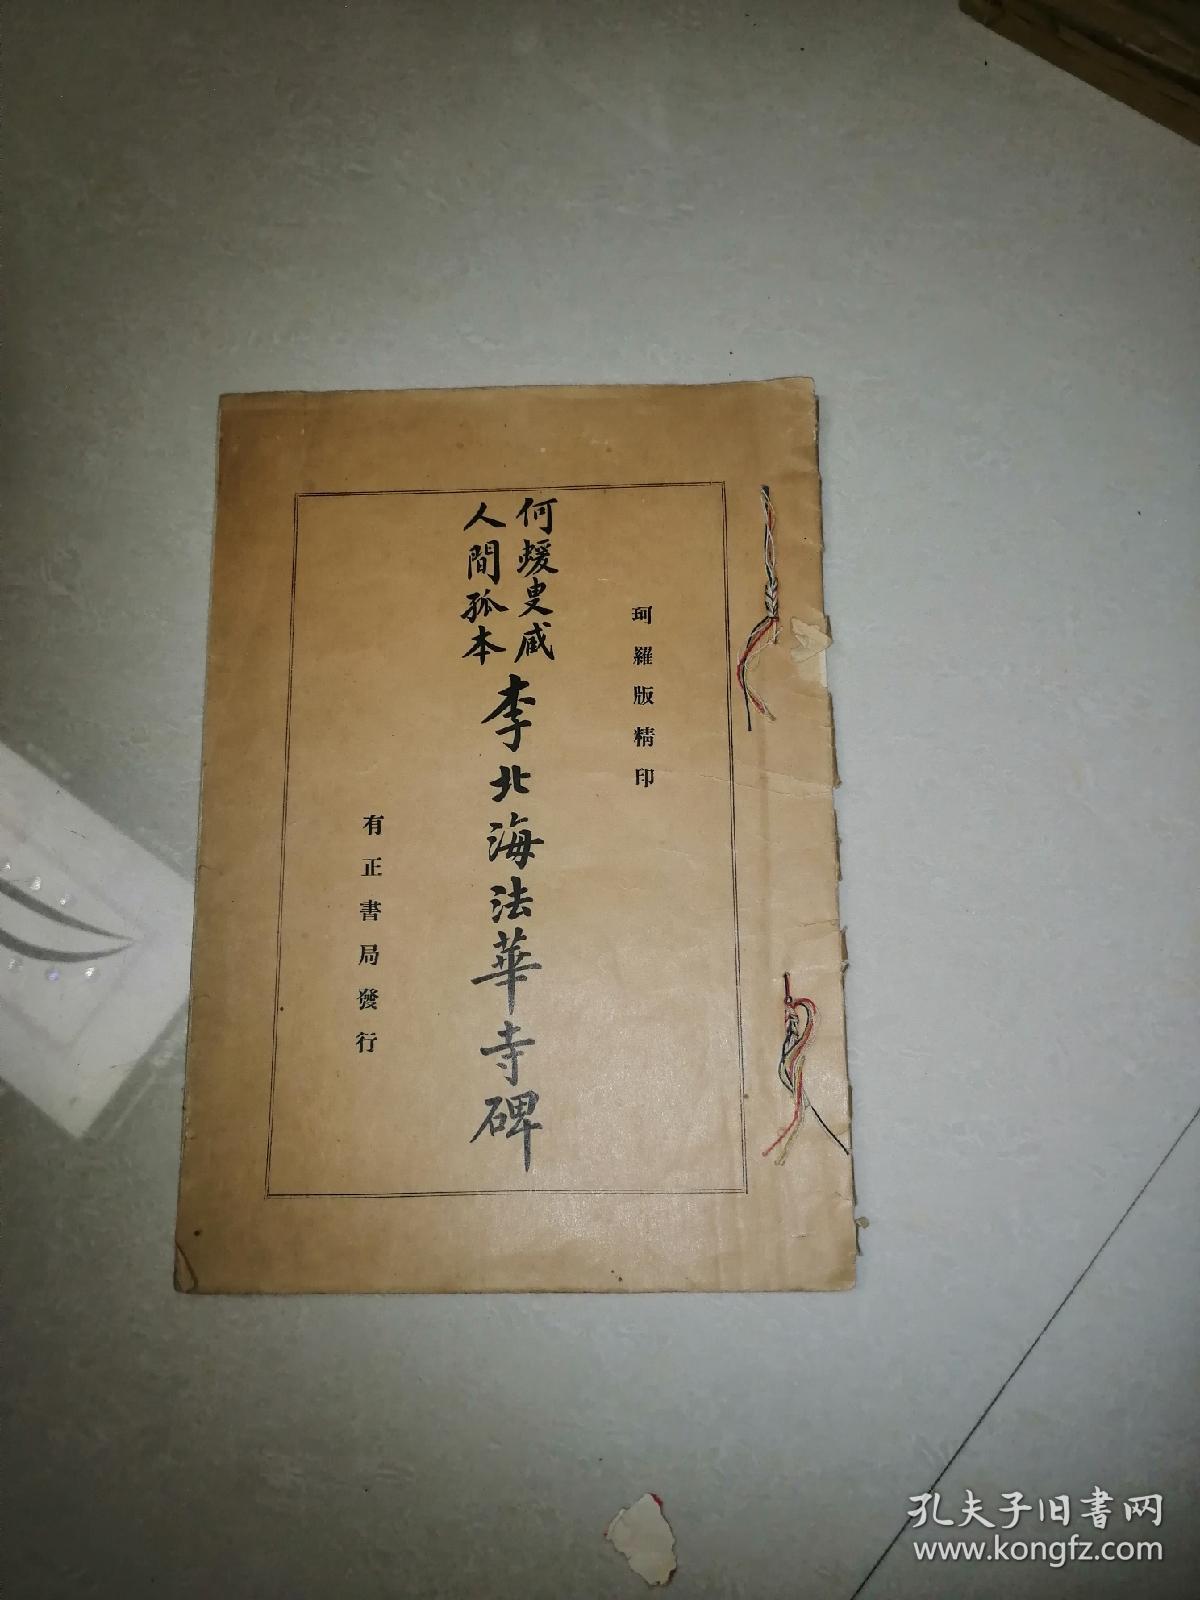 珂羅版精印
何蝯叟臧
人間孤本
李北海法華寺碑
有正書局發行
孔夫子旧书网
www.kongfz.com